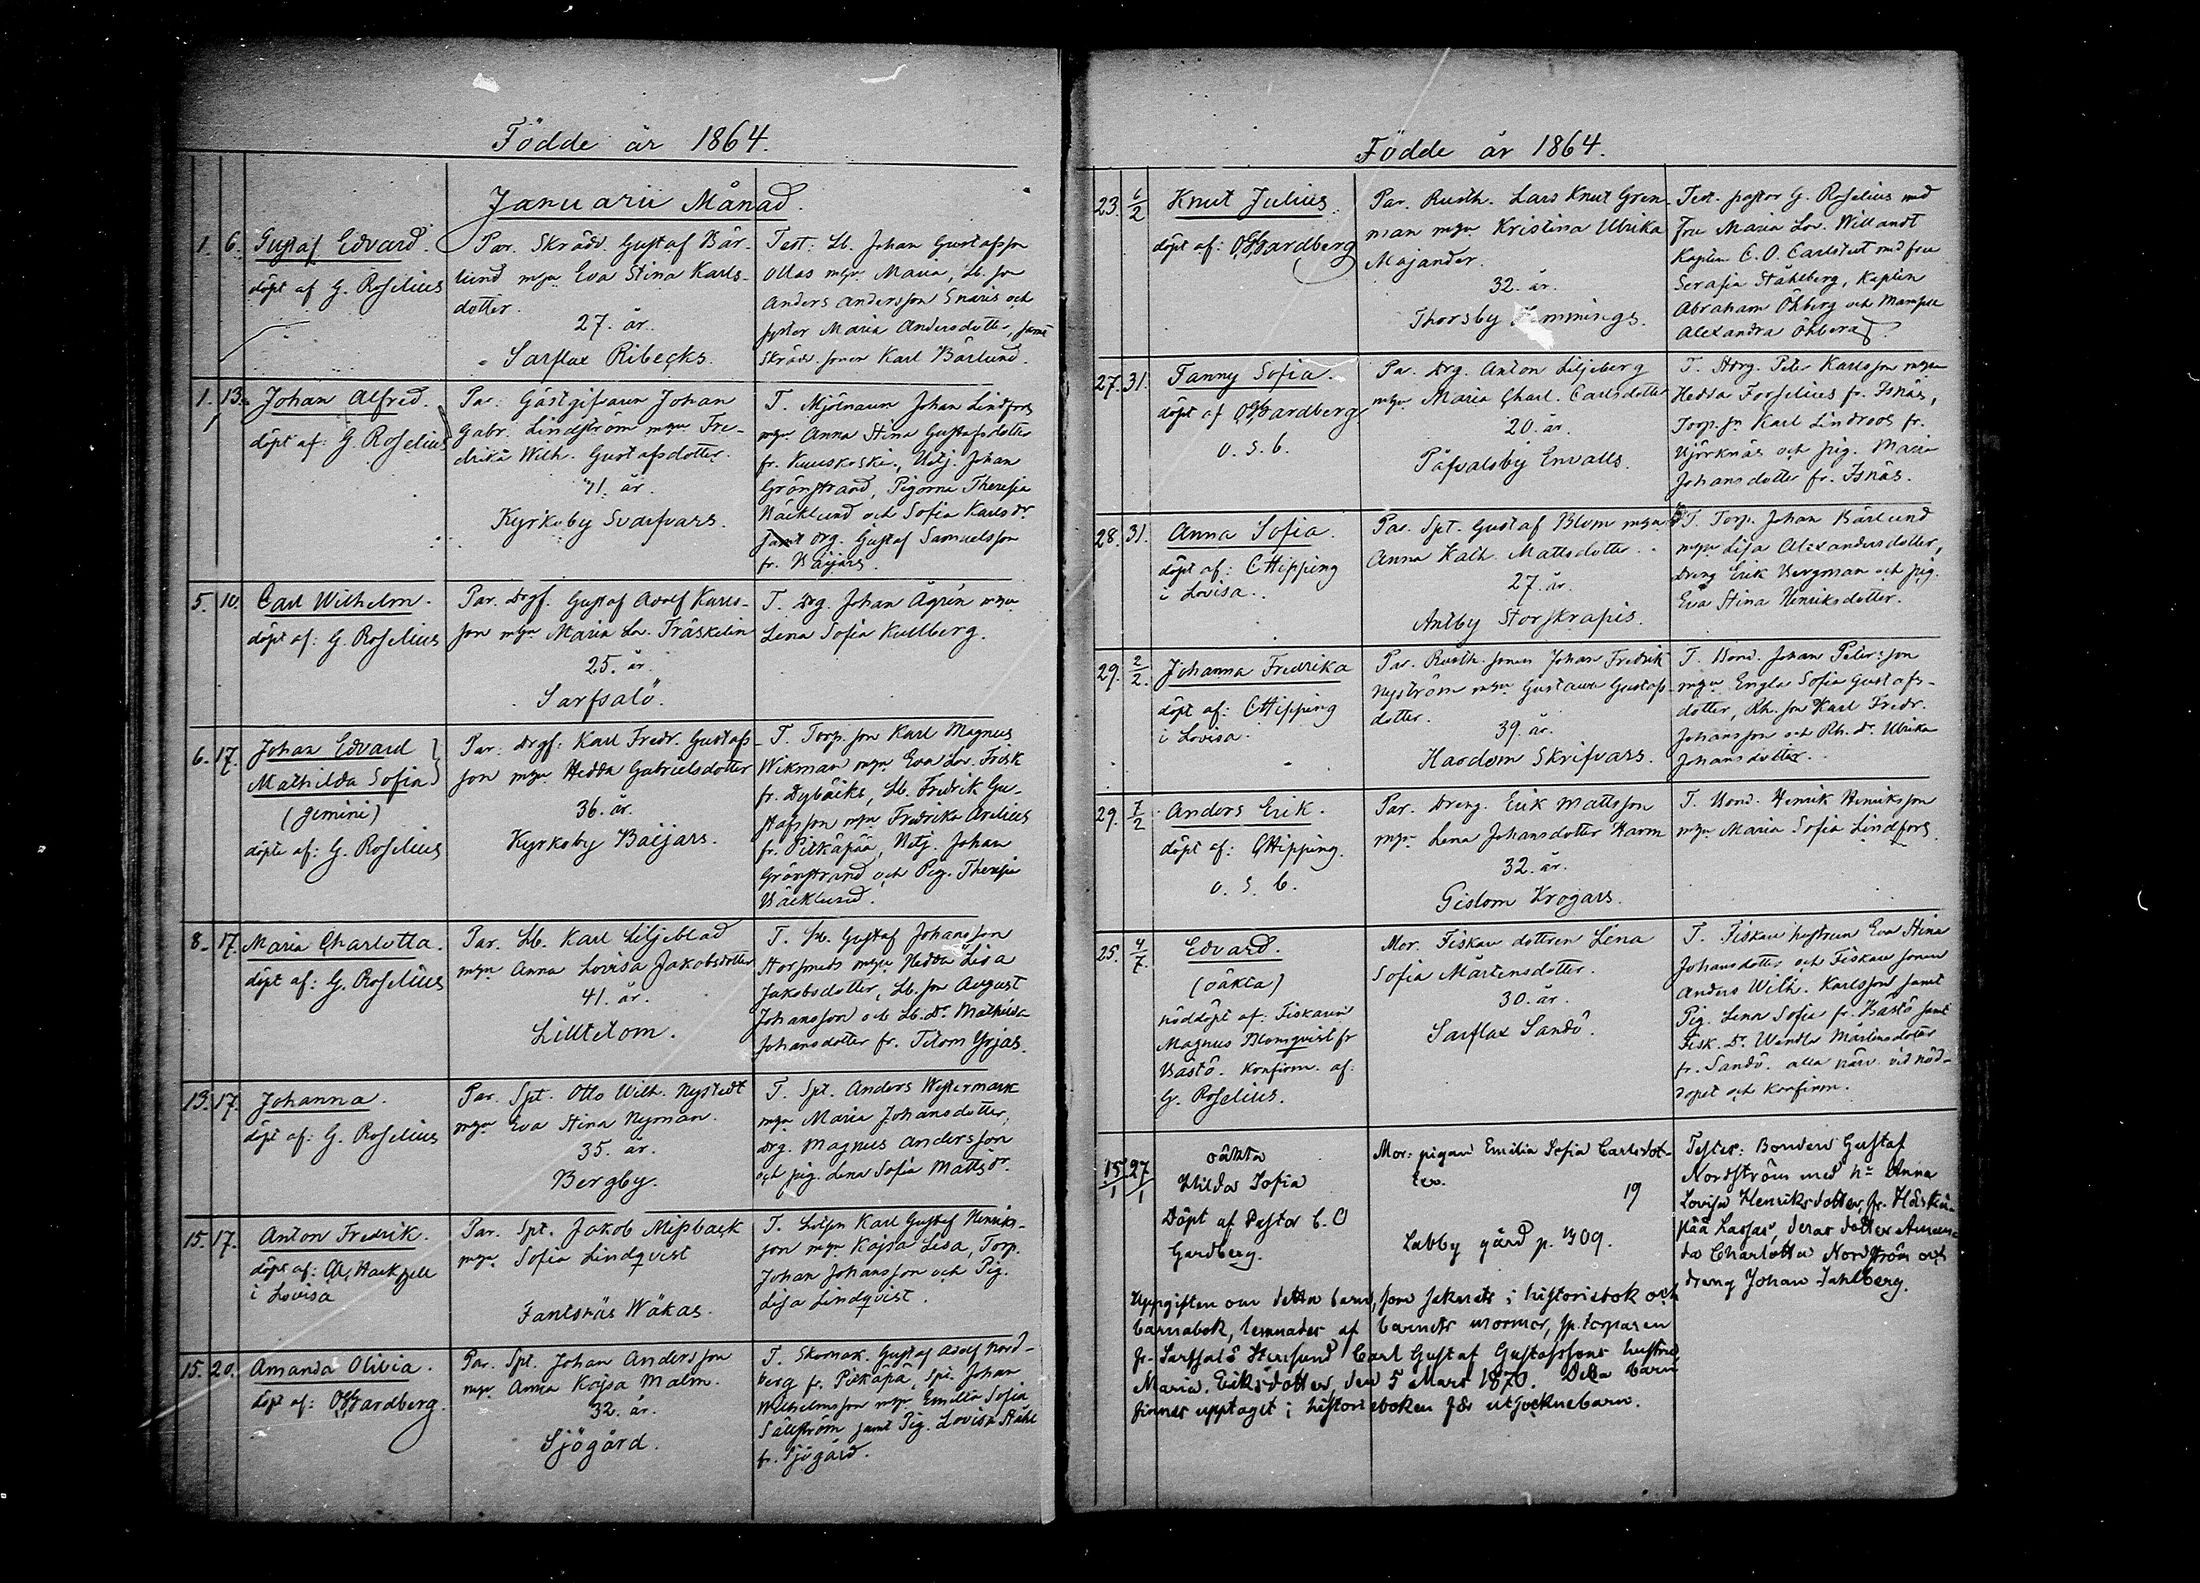 Födde år 1864.
Januarii Månad.
1. 6. Gustaf Edvard.
döpt af G. Roselius
Par. Skrädd. Gustaf Bär-
lund m hu Eva Stina Karls-
dotter.
27. år.
Sarflax Ribecks.
Test. Lb. Johan Gustafsson
Ollas m hu Maria, Lb. son
Anders Andersson Snaris och
syster Maria Andersdotter, samt
Skrädd. sonen Karl Bärlund.
1. 13. Johan Alfred.
döpt af: G. Roselius
Par: Gästgifvaren Johan
Gabr. Lindström m hu Fre-
drika Wilh. Gustafsdotter.
41. år.
Kyrkoby Svarfvars.
T. Mjölnaren Johan Lindfors
m hu Anna Stina Gustafsdotter
fr. Kuuskoski, Johan
Grönstrand, Pigorna Theresia
Bäcklund och Sofia Karlsdr.
samt drg. Gustaf Samuelsson
fr. Baijars.
5. 10. Carl Wilhelm.
döpt af: G. Roselius
Par. Drgf. Gustaf Adolf Karls-
son m hu Maria Lov. Träskelin
25. år.
Sarfsalö.
T. Drg. Johan Ågrén m hu
Lena Sofia Kullberg.
6. 17. Johan Edvard
Mathilda Sofia
(gemini)
döpte af: G. Roselius
Par: drgf: Karl Fredr. Gustafs-
son m hu Hedda Gabrielsdotter
36. år.
Kyrkoby Baijars.
T. Torp. son Karl Magnus
Wikman m hu Eva Lov. Frisk
fr. Dybäcks, Lb. Fredrik Gu-
stafsson m hu Fredrika Arelius
fr. Pitkäpää, Johan
Grönstrand och Pig. Theresia
Bäcklund.
8. 17. Maria Charlotta.
döpt af: G. Roselius
Par. Lb. Karl Liljeblad
m hu Anna Lovisa Jakobsdotter
41. år.
Lilltetom.
T. Lb. Gustaf Johansson
Storsmeds m hu Hedda Lisa
Jakobsdotter, Lb. son August
Johansson och Lb. Dr. Mathilda
Johansdotter fr. Tetom Yrjas.
13. 17. Johanna.
döpt af: G. Roselius
Par. Spt. Otto Wilh. Nystedt
m hu Eva Stina Nyman.
35. år.
Bergby.
T. Spt. Anders Westermark
m hu Maria Johansdotter,
drg. Magnus Andersson
och pig. Lena Sofia Mattsdr.
15. 17. Anton Fredrik.
döpt af: Hackzell
i Lovisa
Par. Spt. Jakob Missback
m hu Sofia Lindqvist
Fantsnäs Wäkas.
T. Karl Gustaf Henriks-
son m hu Kajsa Lisa, Torp.
Johan Johansson och Pig.
Lisa Lindqvist.
15. 20. Amanda Olivia.
döpt af: Gardberg.
Par. Spt. Johan Andersson
m hu Anna Kajsa Malm.
32. år.
Sjögård.
T. Skomak. Gustaf Adolf Nord-
berg fr. Pitkäpä, Spt. Johan
Wilhelmsson m hu Emilia Sofia
Sälström samt Pig. Lovisa Ståhl
fr. Sjögård.
Födde år 1864.
23. 6/2 Knut Julius.
döpt af: Gardberg
Par. Rusth. Lars Knut Gren-
man m hu Kristina Ulrika
Majander.
32. år.
Thorsby Hemmings.
Test. pastor G. Roselius med
Fru Maria Lov. Willandt
Kapten C. O. Carlstedt med fru
Serafia Ståhlberg, Kapten
Abraham Öhberg och Mamsell
Alexandra Öhberg.
27. 31. Fanny Sofia.
döpt af Gardberg
o. s. b.
Par. Drg. Anton Liljeberg
m hu Maria Charl. Carlsdotter
20. år.
Påfvalsby Envalls.
T. Peter Karlsson m hu
Hedda Forselius fr. Isnäs,
Torp. sn Karl Lindroos fr.
Björknäs och pig. Maria
Johansdotter fr. Isnäs.
28. 31. Anna Sofia.
döpt af: CHipping
i Lovisa.
Par. Spt. Gustaf Blom m hu
Anna Kath. Mattsdotter.
27. år.
Antby Storskrapis.
T. Torp. Johan Bärlund
m hu Lisa Alexandersdotter,
Dreng Erik Bergman och pig.
Eva Stina Henriksdotter.
29. 2/2. Johanna Fredrika
döpt af: CHipping
i Lovisa.
Par. Rusth. sonen Johan Fredrik
Nyström m hu Gustava Gustafs-
dotter.
39. år.
Hardom Skrifvars.
T. Bond. Johan Petersson
m hu Engla Sofia Gustafs-
dotter, Rh. son Karl Fredr.
Johansson och Rh. dr. Ulrika
Johansdotter.
29. 7/2 Anders Erik.
döpt af: CHipping.
o. s. b.
Par. Dreng. Erik Mattsson
m hu Lena Johansdotter Harm
32. år.
Gislom Krogars.
T. Bond. Henrik Henriksson
m hu Maria Sofia Lindfors.
25. 4/7. Edvard.
(oäkta)
nöddöpt af: Fiskaren
Magnus Blomqvist fr
Bastö. Konfirm. af:
G. Roselius.
Mor. Fiskare dottren Lena
Sofia Mårtensdotter.
30. år.
Sarflax Sandö.
T. Fiskare hustrun Eva Stina
Johansdotter och Fiskare sonen
Anders Wilh. Karlsson samt
Pig. Lena Sofia fr. Bastö samt
Fisk. Dr. Wendla Mårtensdotter
fr. Sandö. alla närv. vid nöd-
dopet och Konfirm.
15/1 27/1 oäkta
Hilda Sofia
Döpt af Pastor C. O
Gardberg.
Mor: pigan Emilia Sofia Carlsdot-
ter.
19
Labby gård p. 309.
Testes: Bonden Gustaf
Nordström med h Anna
Lovisa Henriksdotter, fr. Härkä-
pää Lassas, deras dotter Aman-
da Charlotta Nordström och
dreng Johan Dahlberg.
Uppgiften om detta barn, som saknats i historiebok och
barnabok, lemnades af barnets mormor, sp. torparen
fr. Sarfsalö Carl Gustaf Gustafssons hustru
Maria Eriksdotter, den 5 Mars 1870. Detta barn
finnes upptaget i historieboken för utsocknebarn.